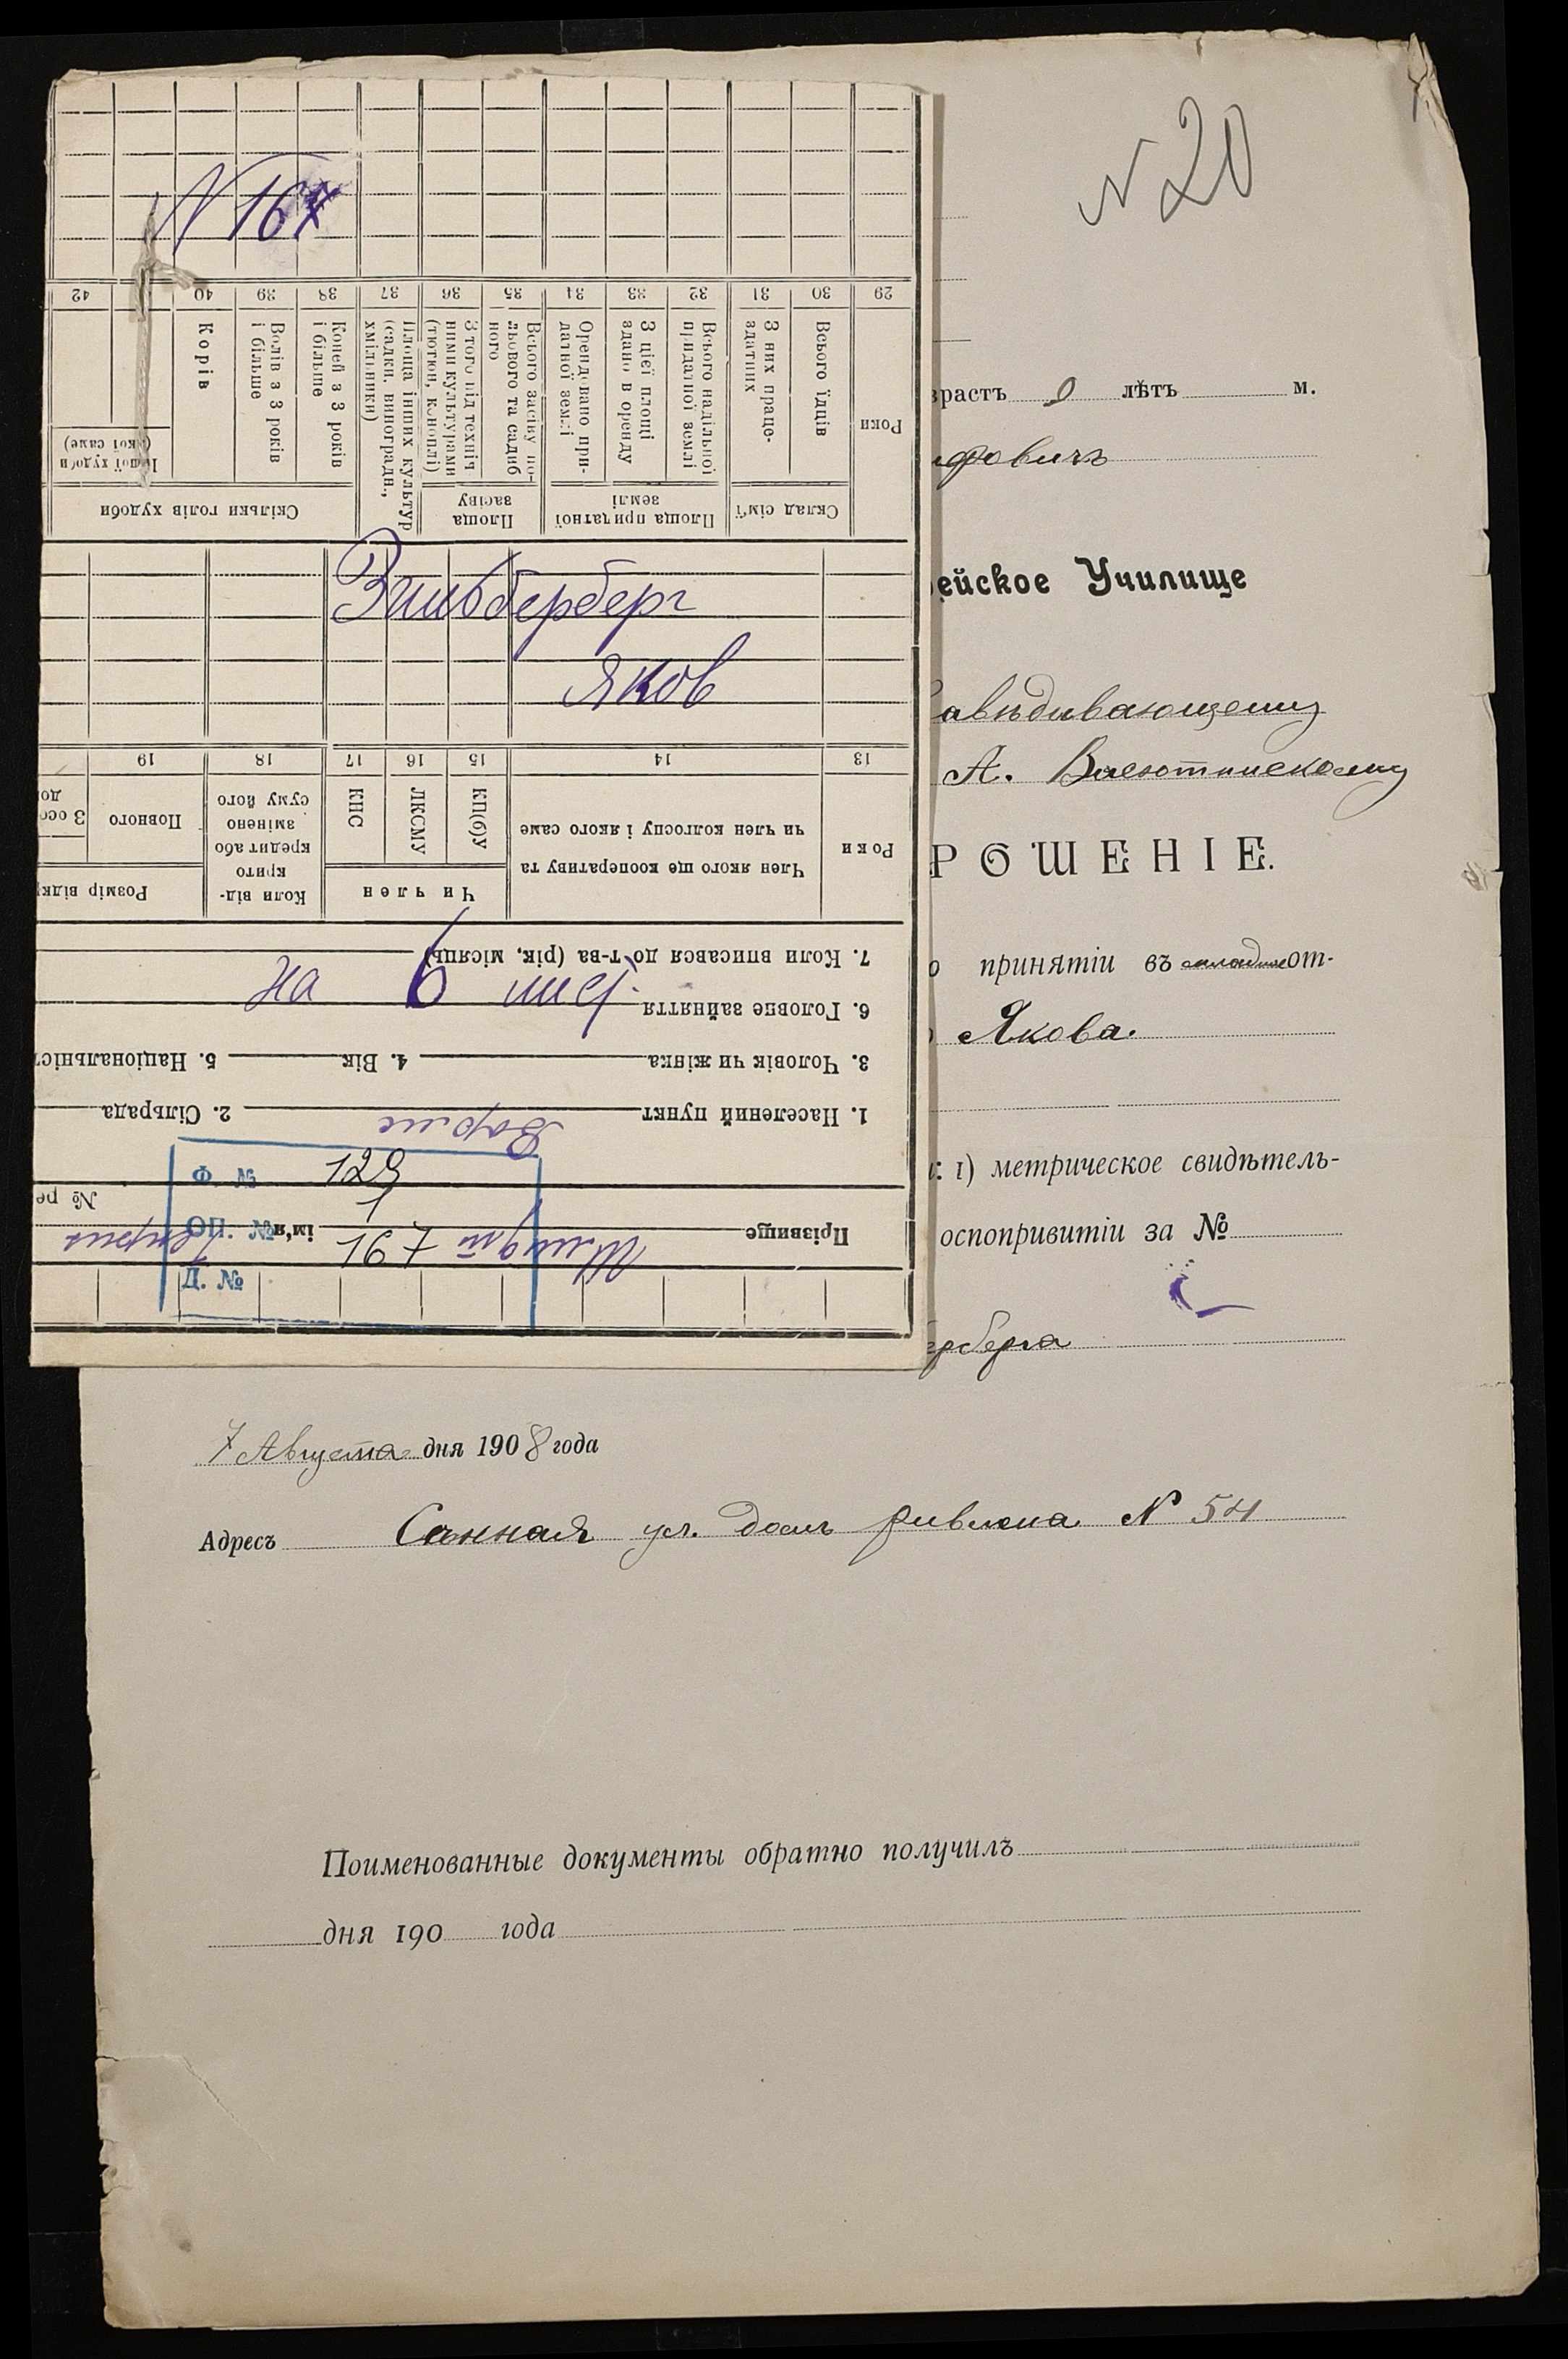 N 20
N 167
42
40
39
38
37
36
35
34
33
32
31
30
29
Корів
Волів з 3 років і більше
Коней з 3 років і більше
Площа інших культур (садки, виноградн., хмільники)
З того під техніч ними культурами (тютюн, коноплі)
Всього засіву по- льового та садиб ного
Орендовано при- датної землі
З цієї площі здано в оренду
Всього надільної придатної землі
З них праце- здатних
Всього їдців
Роки
Іншої худоби (якої саме)
Скільки голів худоби
Площа засіву
Площа придатної землі
Склад сім'ї
Зильберберг
Яков
19
18
17
16
15
14
13
Повного
Коли від- крито кредит або змінено суму його
КНС
ЛКСМУ
КП(б)У
Член якого ще кооперативу та
чи член колгоспу і якого саме
Роки
Розмір відк
Чи член
7. Коли вписався до т-ва (рік, місяць)
на 6 лист.
6. Головне зайняття
3. Чоловік чи жінка 4. Вік 5. Національніс
1. Населений пункт 2. Сільрада
№ Ф 129
1
Прізвище ім'я № ре
№ ПО
167
№ Д.
зрастъ 9 лѣтъ м.
фовичъ
ейское Училище
авѣдывающему
А.
РОШЕНІЕ.
о принятіи въ младшее от-
Якова.
: 1) метрическое свидѣтель-
оспопривитіи за №
ерберга
7 Августа дня 1908 года
Адресъ Сѣнная ул. домъ Ривлина N 54
Поименованные документы обратно получилъ
дня 190 года